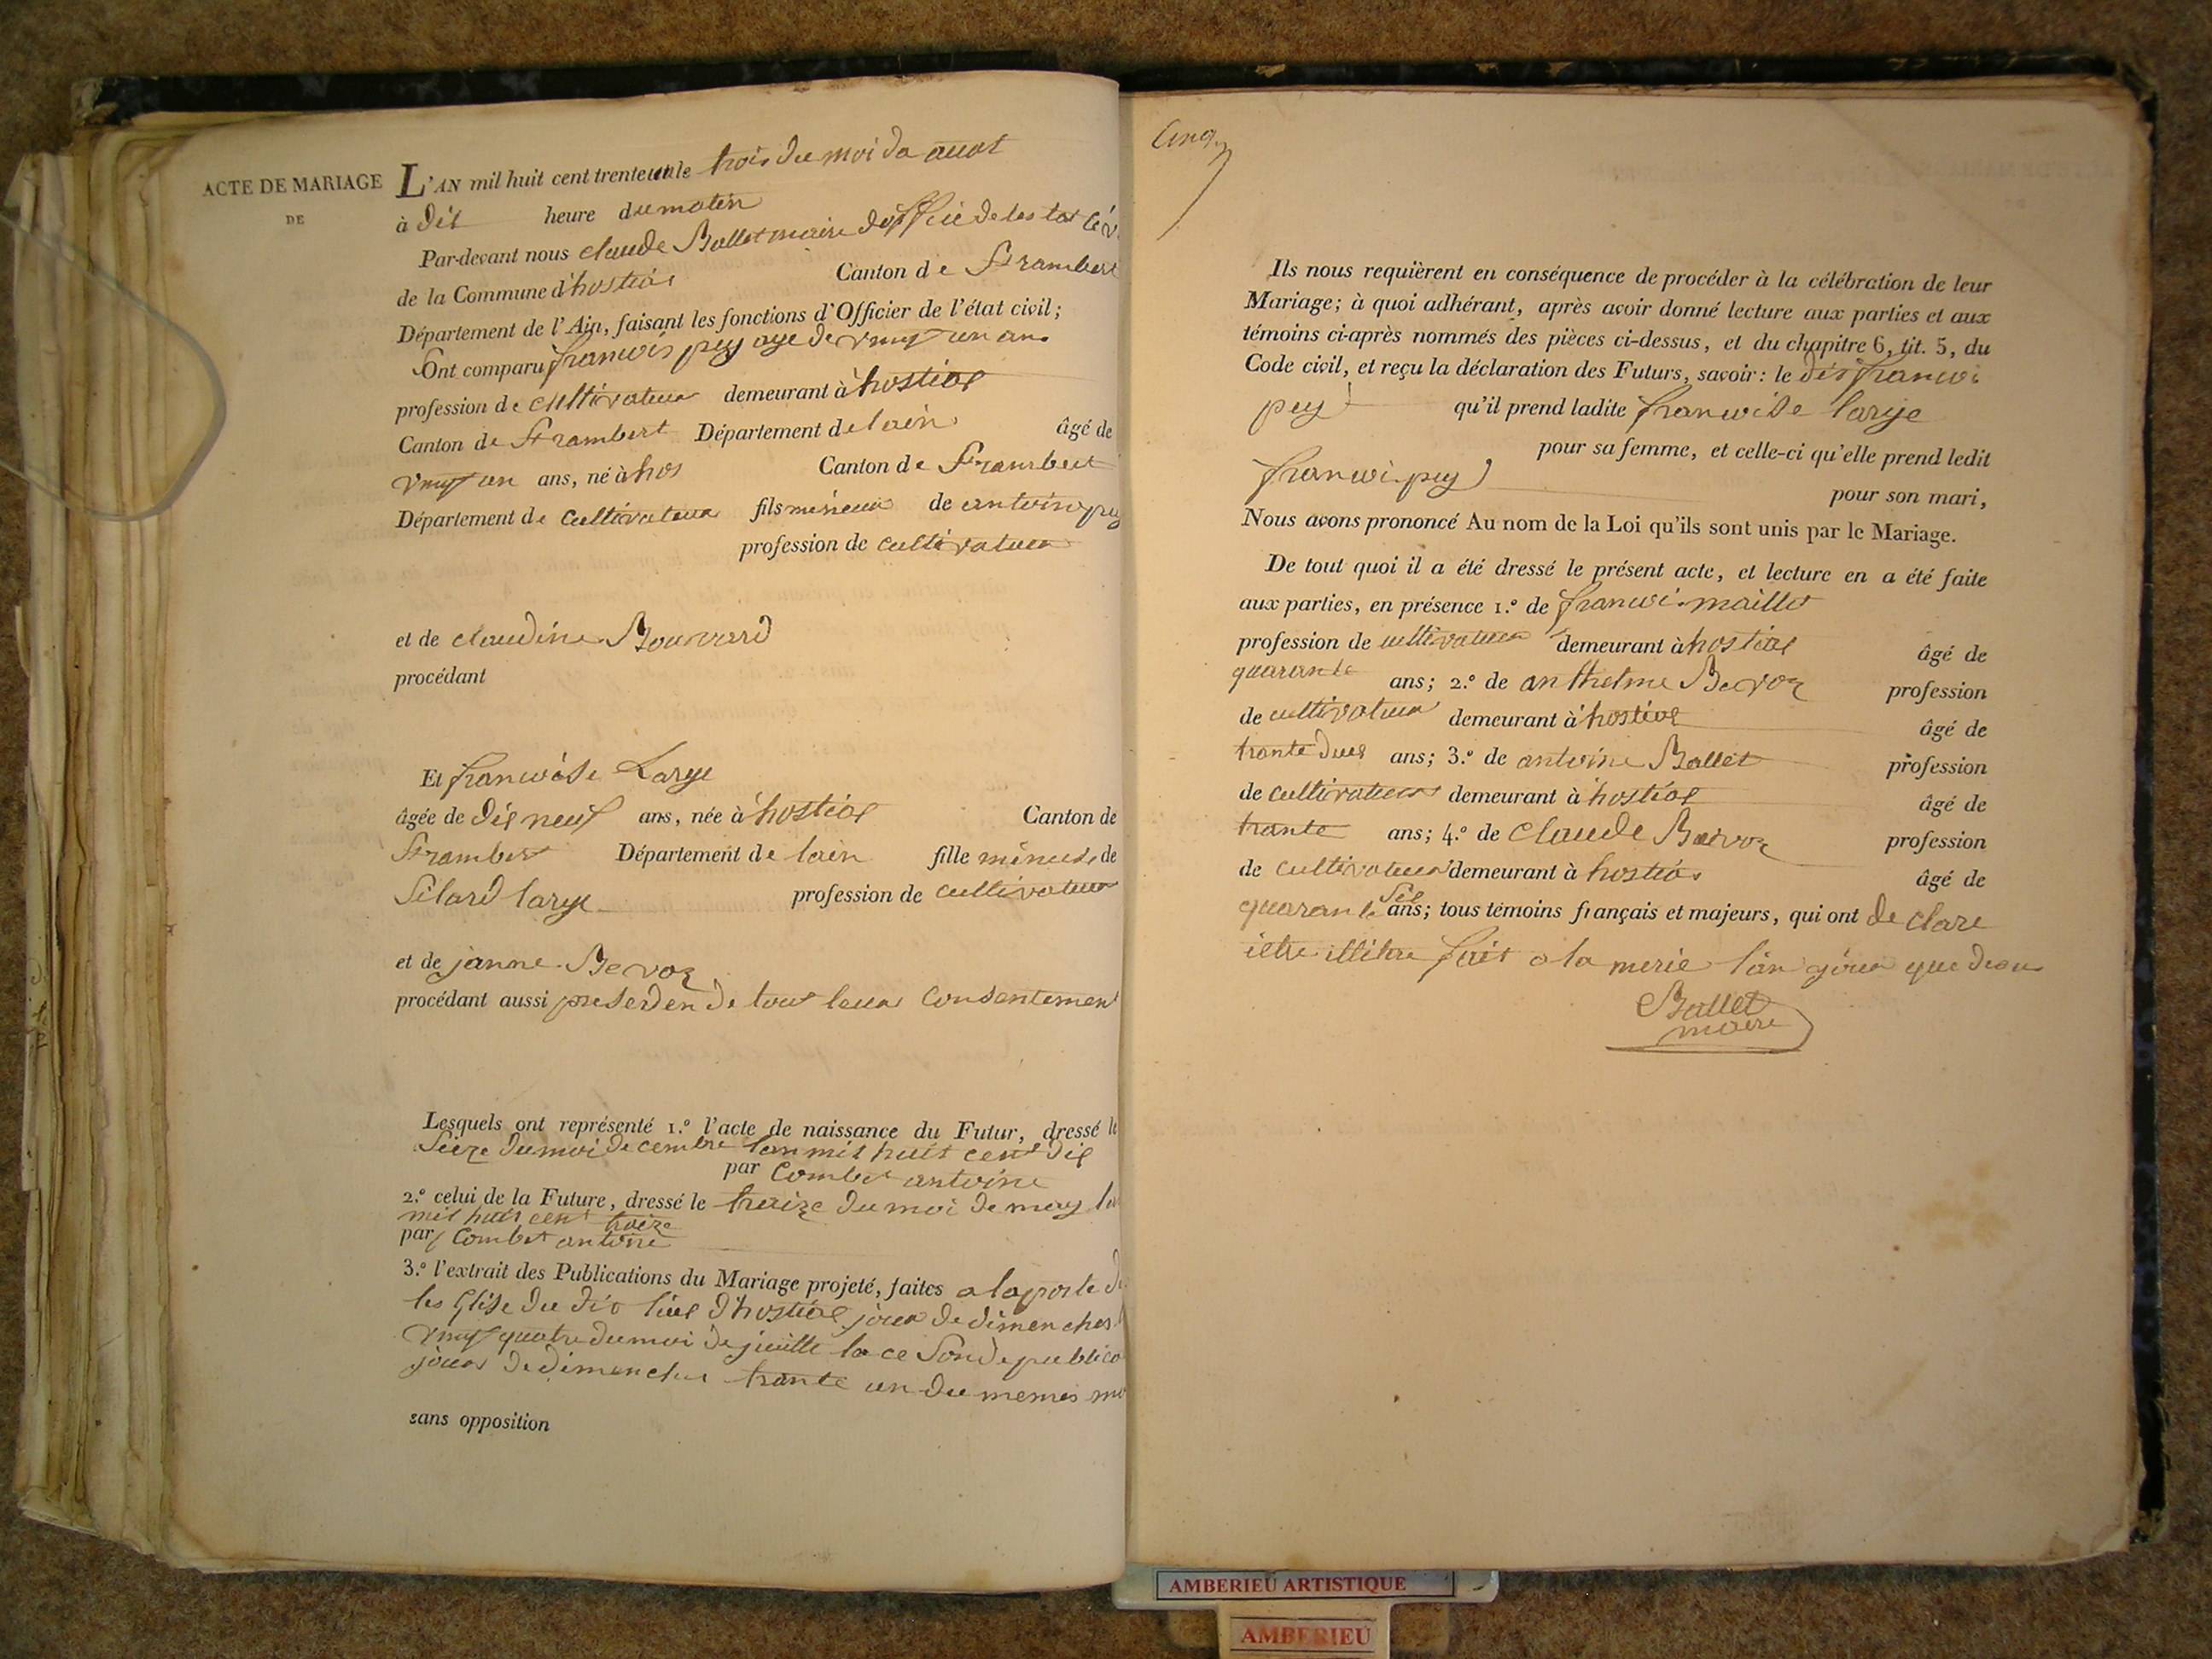 ACTE DE MARIAGE
DE
L'AN mil huit cent trente un le trois du moi da auot
à dis heure du matin
Par-devant nous claude Ballet maire
de la Commune d'hostias Canton de St rambert
Département de l'Ain, faisant les fonctions d'Officier de l'état civil;
Ont comparu franwis pey age de vingt un ans
profession de cultivateur demeurant à hostias
Canton de St rambert Département de lain âgé de
vingt un ans, né à hos Canton de St rambert
Département de cultivateur fils mineur de antoine pey
profession de cultivateur
et de claudine Bouvard
procédant
Et franwise Large
âgée de dis neuf ans, née à hostias Canton de
St rambert Département de lain fille mineur de
Silard large profession de cultivateur
et de janne Bevoz
procédant aussi tout leur consentement
Lesquels ont représenté 1.º l'acte de naissance du Futur, dressé le
Seize du moi decembre lan mil huit cent dis
par Combet antoine
2.º celui de la Future, dressé le traize du moi de may lan
mil huit cent traize
par Combet antoine
3.º l'extrait des Publications du Mariage projeté, faites a la porte de
les Glise du dit lieu d'hostias jour de dimenches
vingt quatre du moi de juillle la ce Sonde publica
jour de dimenches trante un du memes moi
sans opposition
Cinq
Ils nous requièrent en conséquence de procéder à la célébration de leur
Mariage; à quoi adhérant, après avoir donné lecture aux parties et aux
témoins ci-après nommés des pièces ci-dessus, et du chapitre 6, tit. 5, du
Code civil, et reçu la déclaration des Futurs, savoir: le dis franwi
pey qu'il prend ladite franwise large
pour sa femme, et celle-ci qu'elle prend ledit
franwi pey pour son mari,
Nous avons prononcé Au nom de la Loi qu'ils sont unis par le Mariage.
De tout quoi il a été dressé le présent acte, et lecture en a été faite
aux parties, en présence 1.º de franwi maillet
profession de cultivateur demeurant à hostias âgé de
quarante ans; 2.º de anthelme Bevoz profession
de cultivateur demeurant à hostias âgé de
trante dues ans; 3.º de antoine Ballet profession
de cultivateur demeurant à hostias âgé de
trante ans; 4.º de claude Bevoz profession
de cultivateur demeurant à hostias âgé de
quarante Sis ans; tous témoins français et majeurs, qui ont de clare
ietre illitre fait a la merie lan jour que desus
Ballet
maire
AMBERIEU ARTISTIQUE
AMBERIEU